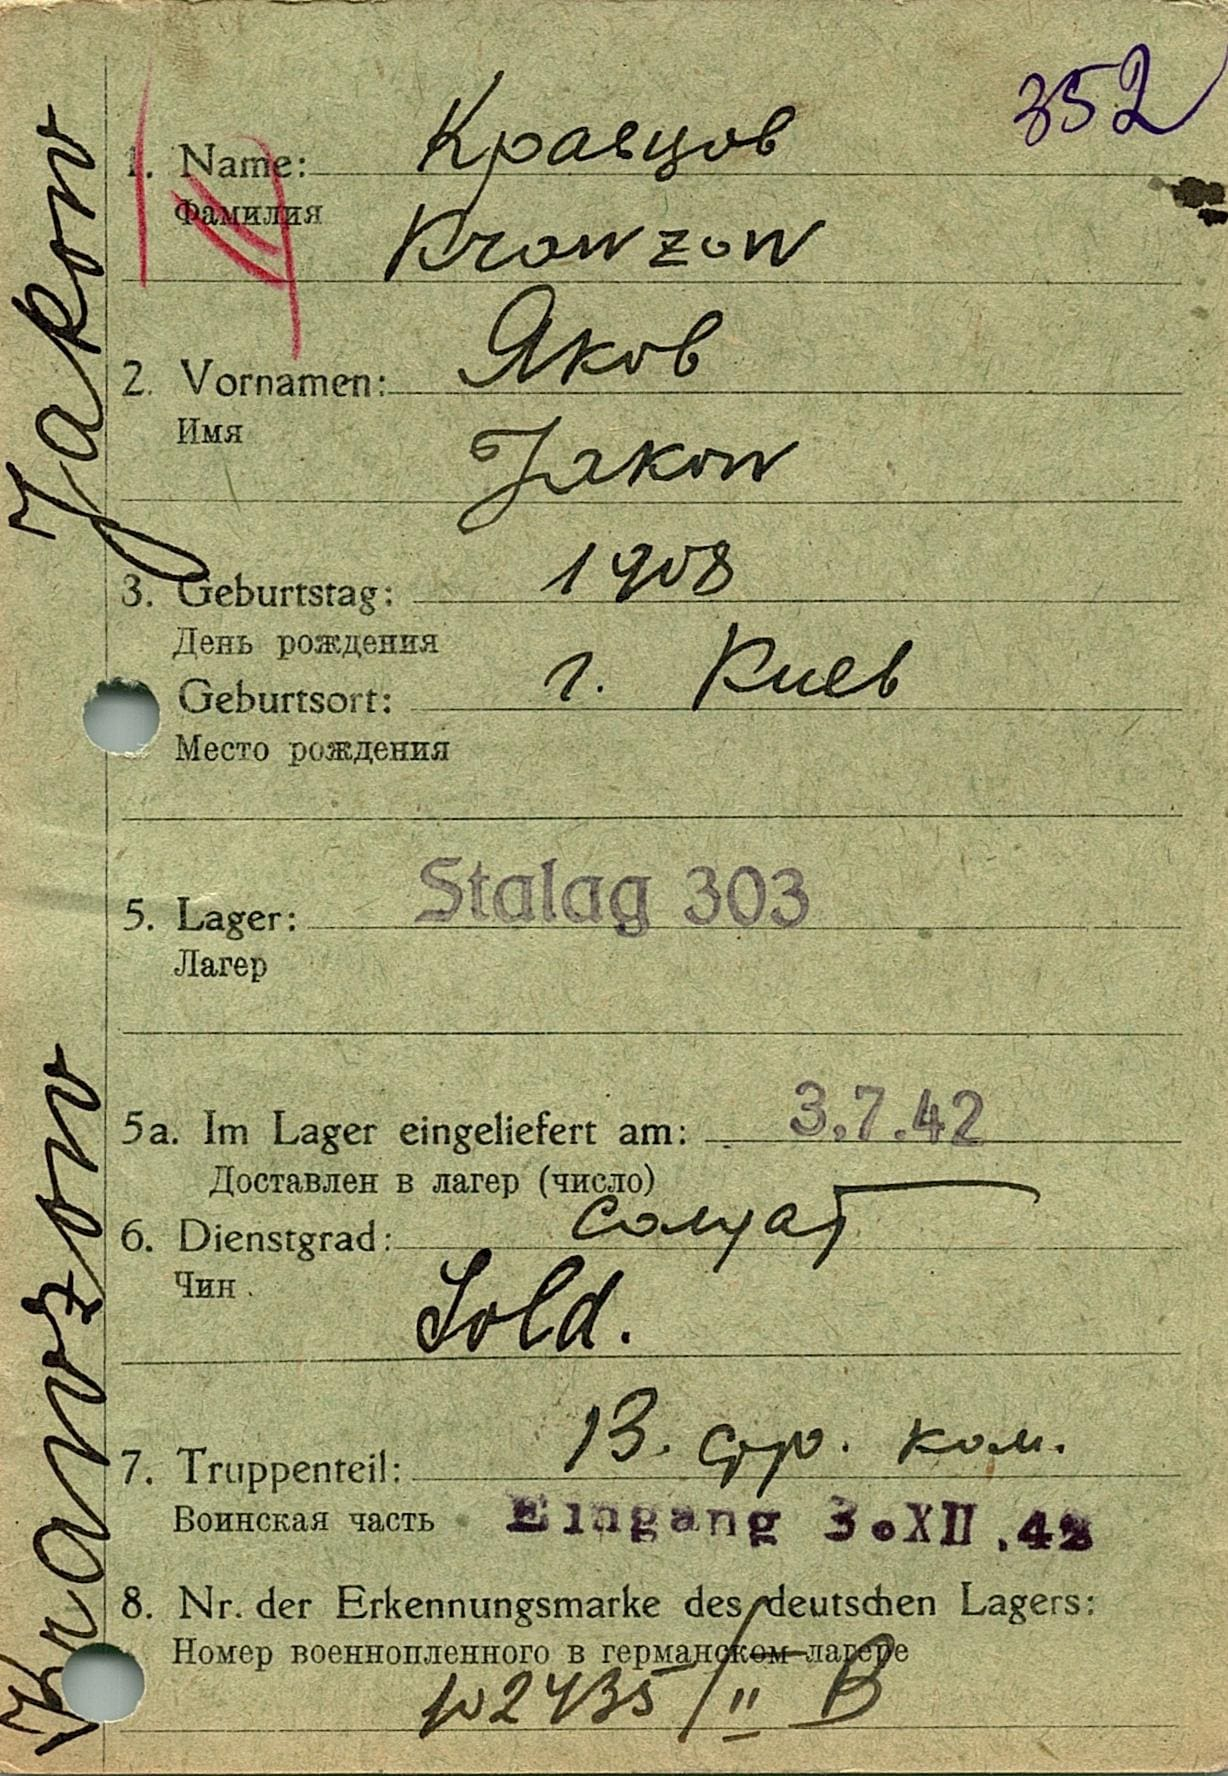 352
1. Name: Кравцов
Фамилия
Krawzow
2. Vornamen: Яков
Имя
Jakow
3. Geburtstag: 1908
День рождения
Geburtsort: г. Киев
Место рождения
5. Lager: Stalag 303
Лагер
5a. Im Lager eingeliefert am: 3.7.42
Доставлен в лагер (число)
6. Dienstgrad: солдат
Чин
Sold.
7. Truppenteil: 13. стр. ком.
Воинская часть Eingang 3.XII.42
8. Nr. der Erkennungsmarke des deutschen Lagers:
Номер военнопленного в германском лагере
102435/II B
Krawzow Jakow